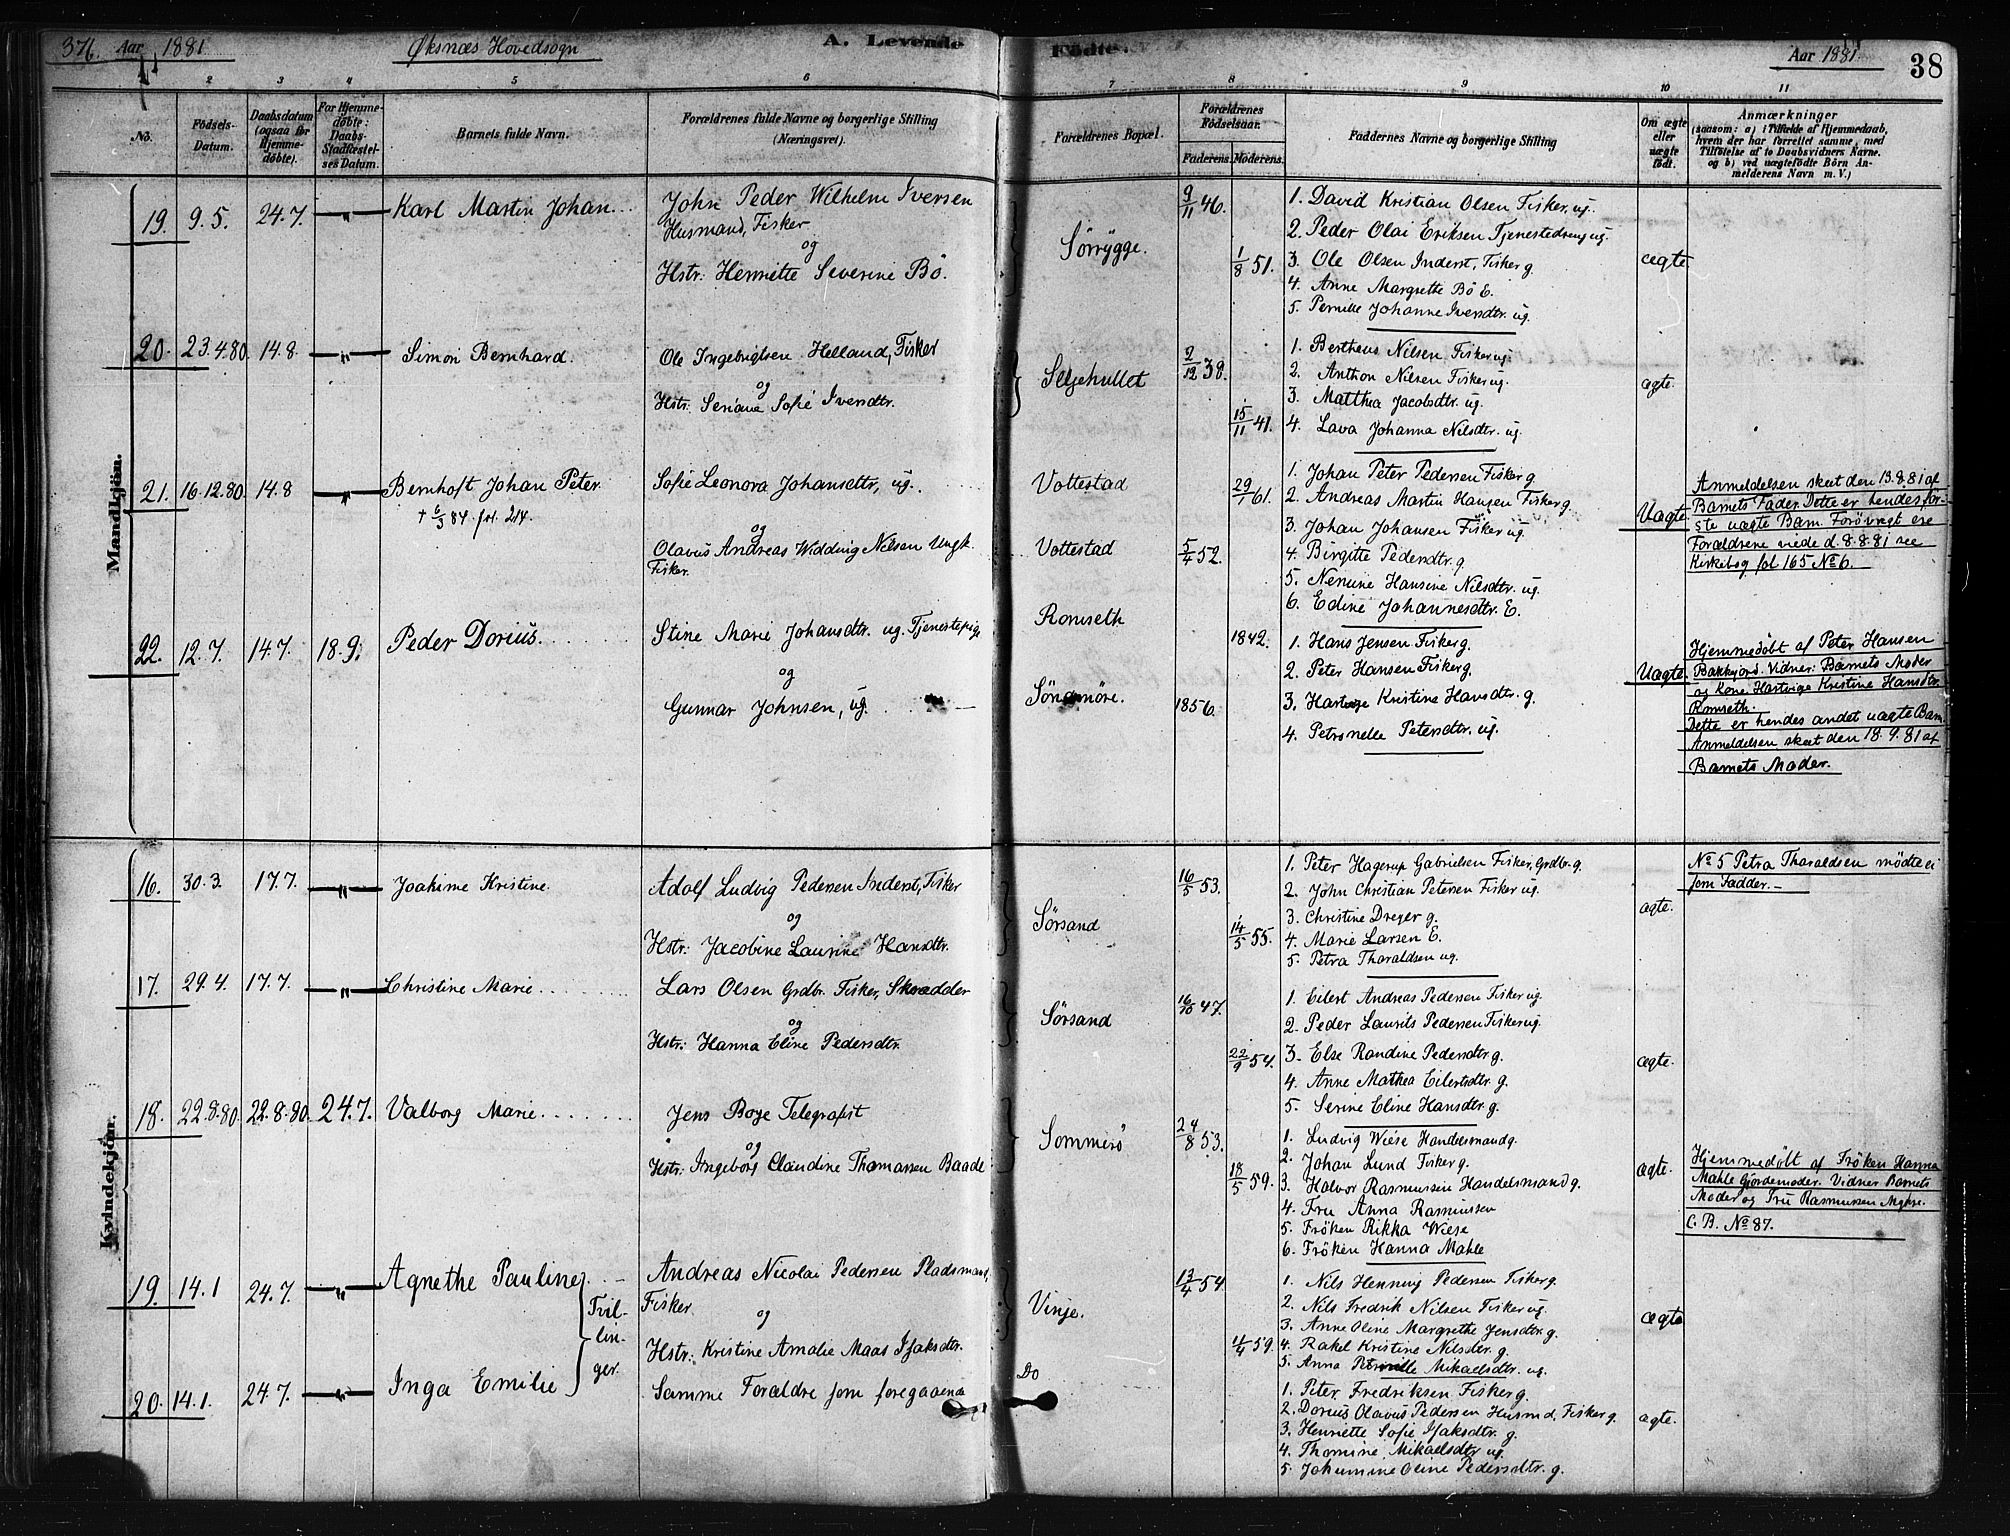 37b. Aar 1881
Øksnæs Hovedsogn
A. Levende
Fødte.
Aar 1881.
38
2 3 4 5 6 7 8 9 10 11
No.
Fødsels-Datum.
Daabsdatum (ogsaa for Hjemmedøbte).
For Hjemmedøbte: Daabs-Stadfæstelses Datum.
Barnets fulde Navn.
Forældrenes fulde Navne og borgerlige Stilling (Næringsvei).
Forældrenes Bopæl.
Forældrenes Fødselsaar.
Faderens. Moderens.
Faddernes Navne og borgerlige Stilling
Om ægte eller uægte født.
Anmærkninger
(saasom: a) i Tilfælde af Hjemmedaab, hvem der har forrettet samme, med Tilføielse af to Daabsvidners Navne. og b) ved uægtefødte Børn Anmelderens Navn m. V.)
Mandkjøn.
19. 9.5. 24.7. —"— Karl Martin Johan
John Peder Wilhelm Iversen
Husmand, Fisker
og
Hstr: Henriette Severine Bö.
Sörrygge.
9/11 46.
1/8 51.
1. David Kristian Olsen Fisker, ug.
2. Peder Olai Eriksen Tjenestedreng ug.
3. Ole Olsen Inderst, Fisker g.
4. Anne Margrethe Bö E.
5. Pernille Johanne Iversdtr. ug.
ægte.
20. 23.4.80. 14.8. —"— Simon Bernhard
Ole Ingebrigtsen Helland, Fisker
og
Hstr: Seriana Sofie Iversdtr.
Seljehullet
2/12 38.
15/11 41.
1. Bertheus Nilsen Fisker ug.
2. Anthon Nilsen Fisker ug.
3. Matthea Jacobsdtr. ug.
4. Lava Johanna Nilsdtr. ug.
ægte.
21. 16.12.80. 14.8 —"— Bernhoft Johan Peter
† 6/3 84. fol. 214.
Sofie Leonora Johansdtr, ug.
og
Olavus Andreas Widding Nilsen Ungk. Fisker.
Vottestad
Vottestad
29/1 61.
5/4 52.
1. Johan Peter Pedersen Fisker g
2. Andreas Martin Hansen Fisker g
3. Johan Johansen Fisker ug
4. Birgitte Pedersdtr. g.
5. Nensine Hansine Nilsdtr. ug
6. Edine Johannesdtr. E.
Uægte.
Anmeldelsen skeet den 13.8.81 af
Barnets Fader. Dette er hendes för-
ste uægte Barn. Forövrigt ere
Forældrene viede d. 8.8.81 see
Kirkebog fol 165 No 6.
22. 12.7. 14.7. 18.9. Peder Dorius.
Stine Marie Johansdtr. ug. Tjenestepige
og
Gunnar Johnsen, ug.
Romseth
Söndmöre.
1842.
1856.
1. Hans Jensen Fisker g.
2. Peter Hansen Fisker g.
3. Hartvige Kristine Hansdtr. g.
4. Petronelle Petersdtr. ug.
Uægte.
Hjemmedöbt af Peter Hansen
Bakkejord. Vidner: Barnets Moder
og Kone Hartvige Kristine Hansdtr.
Romseth.
Dette er hendes andet uægte Barn.
Anmeldelsen skeet den 18.9.81 af
Barnets Moder.
Kvindekjøn.
16. 30.3. 17.7. —"— Joakime Kristine.
Adolf Ludvig Pedersen Inderst, Fisker
og
Hstr: Jacobine Laurine Hansdtr.
Sörsand
16/5 53.
14/5 55.
1. Peter Hagerup Gabrielsen Fisker, Grdbr. g.
2. John Christian Petersen Fisker ug.
3. Christine Dreyer g.
4. Marie Larsen E.
5. Petra Tharaldsen ug.
ægte.
No 5 Petra Tharaldsen mödte ei
som Fadder.—
17. 29.4. 17.7. —"— Christine Marie
Lars Olsen Grdbr. Fisker, Skrædder
og
Hstr: Hanna Eline Pedersdtr.
Sörsand
16/10 47.
22/9 54.
1. Eilert Andreas Pedersen Fisker ug.
2. Peder Laurits Pedersen Fisker ug.
3. Else Randine Pedersdtr. g.
4. Anne Mathea Eilertsdtr. g.
5. Serine Eline Hansdtr. g.
ægte.
18. 22.8.80. 22.8.80. 24.7. Valborg Marie
Jens Boye Telegrafist
og
Hstr: Ingeborg Claudine Thomassen Baade
Sommerö
24/8 53.
18/5 59.
1. Ludvig Wiese Handelsmand g.
2. Johan Lund Fisker g.
3. Halvor Rasmussen Handelsmand g.
4. Fru Anna Rasmussen
5. Fröken Rikka Wiese
6. Fröken Hanna Mahle
ægte.
Hjemmedöbt af Fröken Hanna
Mahle Gjordemoder. Vidner Barnets
Moder og Fru Rasmussen
C.B. No 87.
19. 14.1 24.7. —"— Agnethe Pauline
Tvil-
lin-
ger.
Andreas Nicolai Pedersen Pladsmand,
Fisker
og
Hstr: Kristine Amalie Maas Isaksdtr.
Vinje.
13/4 54
11/4 59.
1. Nils Henning Pedersen Fisker g.
2. Nils Fredrik Nilsen Fisker ug.
3. Anne Oline Margrethe Jensdtr. g.
4. Rakel Kristine Nilsdtr. g.
5. Anna Petronelle Mikaelsdtr. ug.
ægte
20. 14.1. 24.7. —"— Inga Emilie
Samme Forældre som foregaaende
Do
1. Peter Fredriksen Fisker g.
2. Dorius Olavus Pedersen Husmd, Fisker g.
3. Henriette Sofie Isaksdtr. g.
4. Thomine Mikaelsdtr ug.
5. Johannine Oline Pedersdtr. g.
ægte.